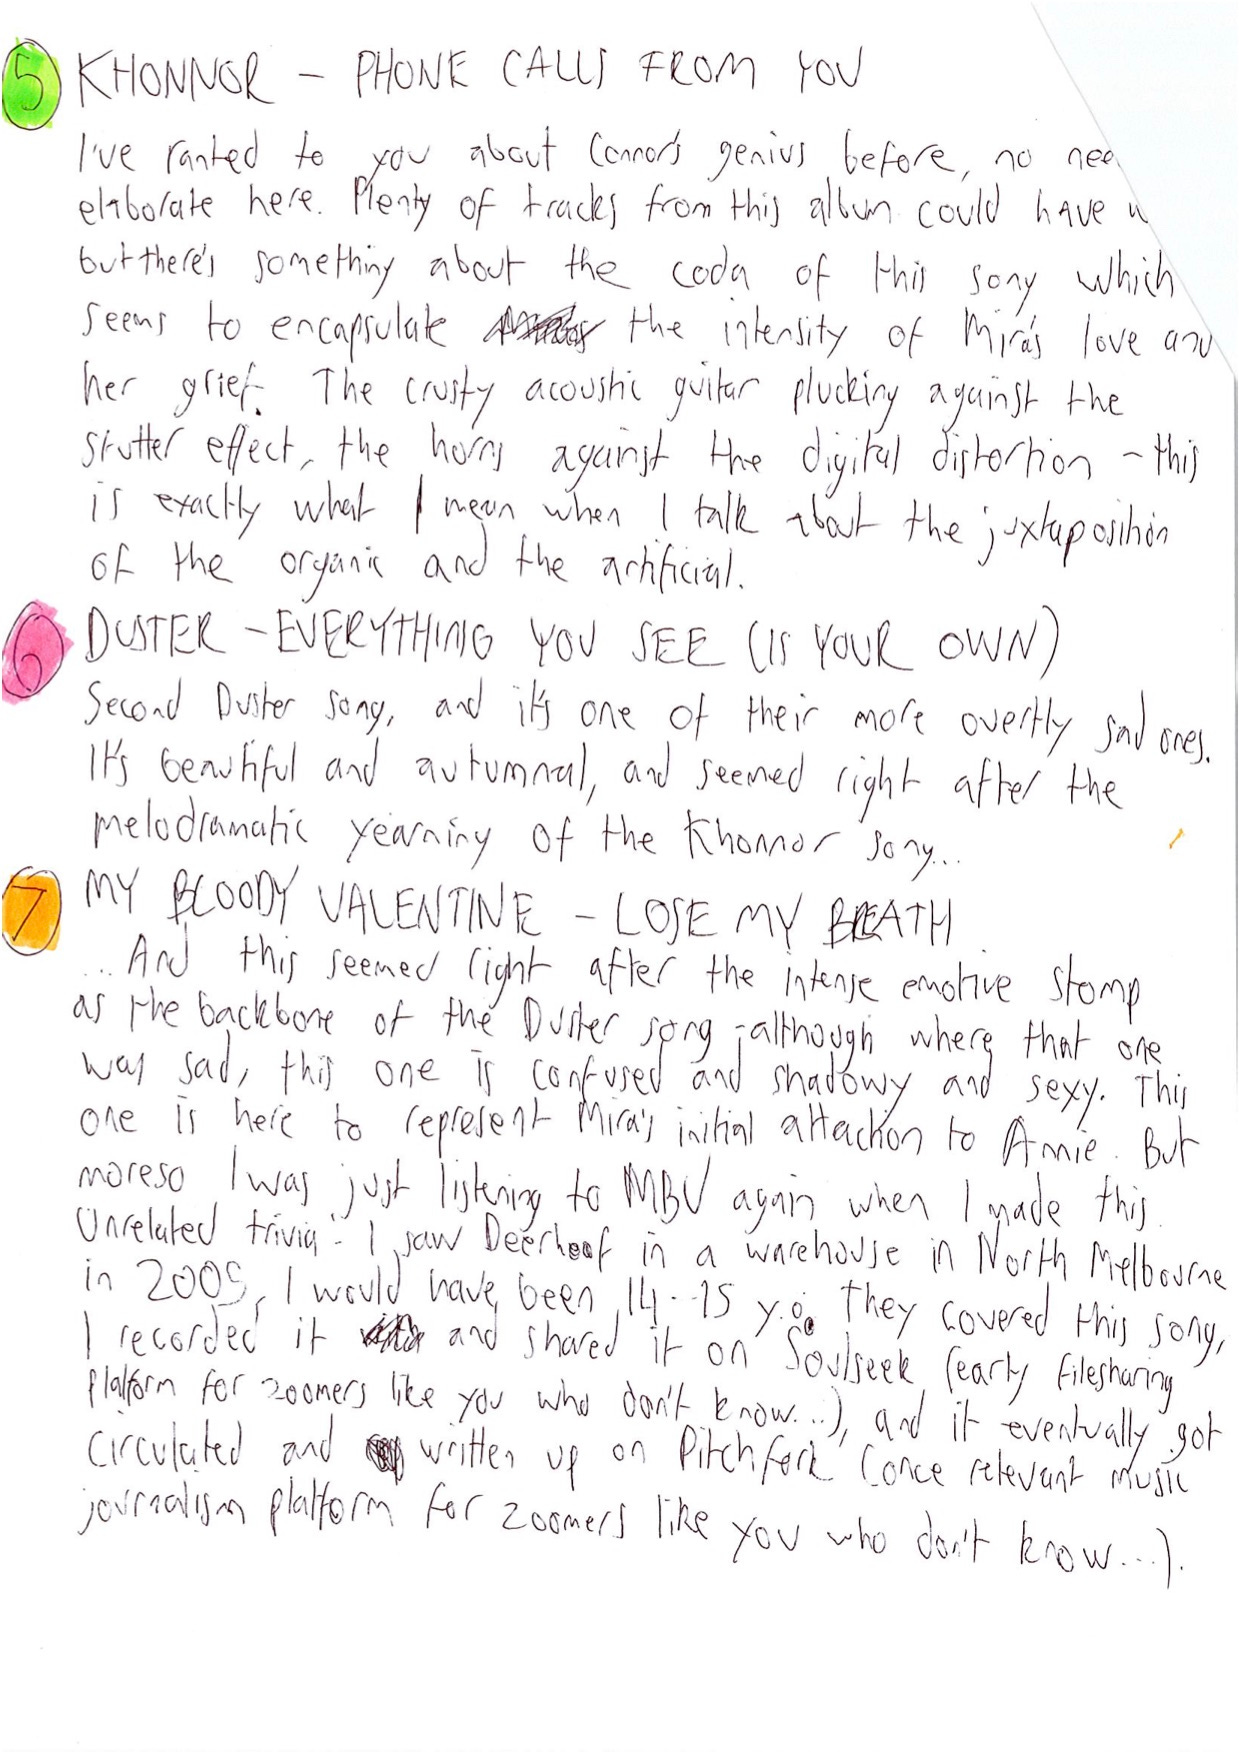 5 KHONNOR – PHONE CALLS FROM YOU
I've ranted to you about Connor's genius before, no nee
elaborate here. Plenty of tracks from this album could have w
but there's something about the coda of this song which
seems to encapsulate the intensity of Mira's love and
her grief. The crusty acoustic guitar plucking against the
stutter effect, the horns against the digital distortion – this
is exactly what I mean when I talk about the juxtaposition
of the organic and the artificial.
6 DUSTER – EVERYTHING YOU SEE (IS YOUR OWN)
Second Duster song, and it's one of their more overtly sad ones.
It's beautiful and autumnal, and seemed right after the
melodramatic yearning of the Khonnor song...
7 MY BLOODY VALENTINE – LOSE MY BREATH
...And this seemed right after the intense emotive stomp
as the backbone of the Duster song – although where that one
was sad, this one is confused and shadowy and sexy. This
one is here to represent Mira's initial attaction to Annie. But
moreso I was just listening to MBV again when I made this.
Unrelated trivia: I saw Deerhoof in a warehouse in North Melbourne
in 2005, I would have been 14--15 y.o. They covered this song,
I recorded it and shared it on Soulseek (early filesharing
platform for zoomers like you who don't know...), and it eventually got
circulated and written up on Pitchfork (once relevant music
journalism platform for zoomers like you who don't know...).